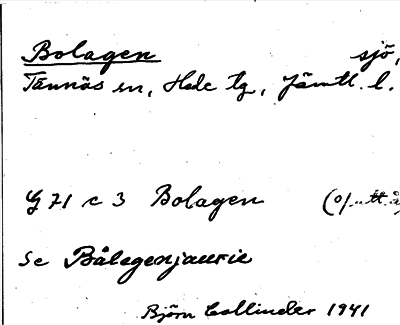 Bolagen sjö,
Tännäs sn, Hede tg, Jämtl. l.
G 71 c 3 Bolagen (o/ utt. å
Se Bålegenjaurie
Björn Collinder 1941